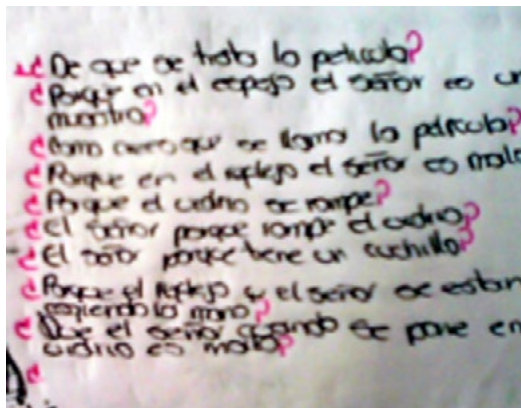 1. ¿De que se trata la pelicula?
¿Porque en el espejo el señor es un
mostro?
¿Como creo que se llama la pelicula?
¿Porque en el reflejo el señor es malo
¿Porque el vidrio se rompe?
¿El señor porque rompe el vidrio?
¿El señor porque tiene un cuchillo?
¿Porque el reflejo y el señor se estan
cogiendo la mano?
¿Que el señor cuando se pone en
vidrio es malo?
¿